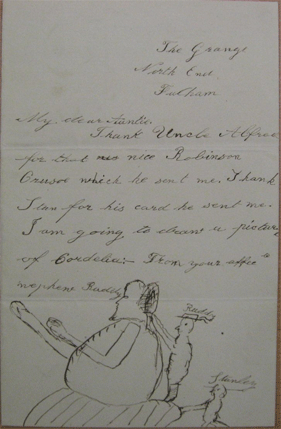 The Grange
North End,
Fulham
My dear Auntie.
Thank Uncle Alfred
for that nice Robinson
Crusoe which he sent me. Thank
Ian for his card he sent me.
I am going to draw u picture
of Cordelia:- From your affec te
nephew Ruddy
Ruddy
Stanley